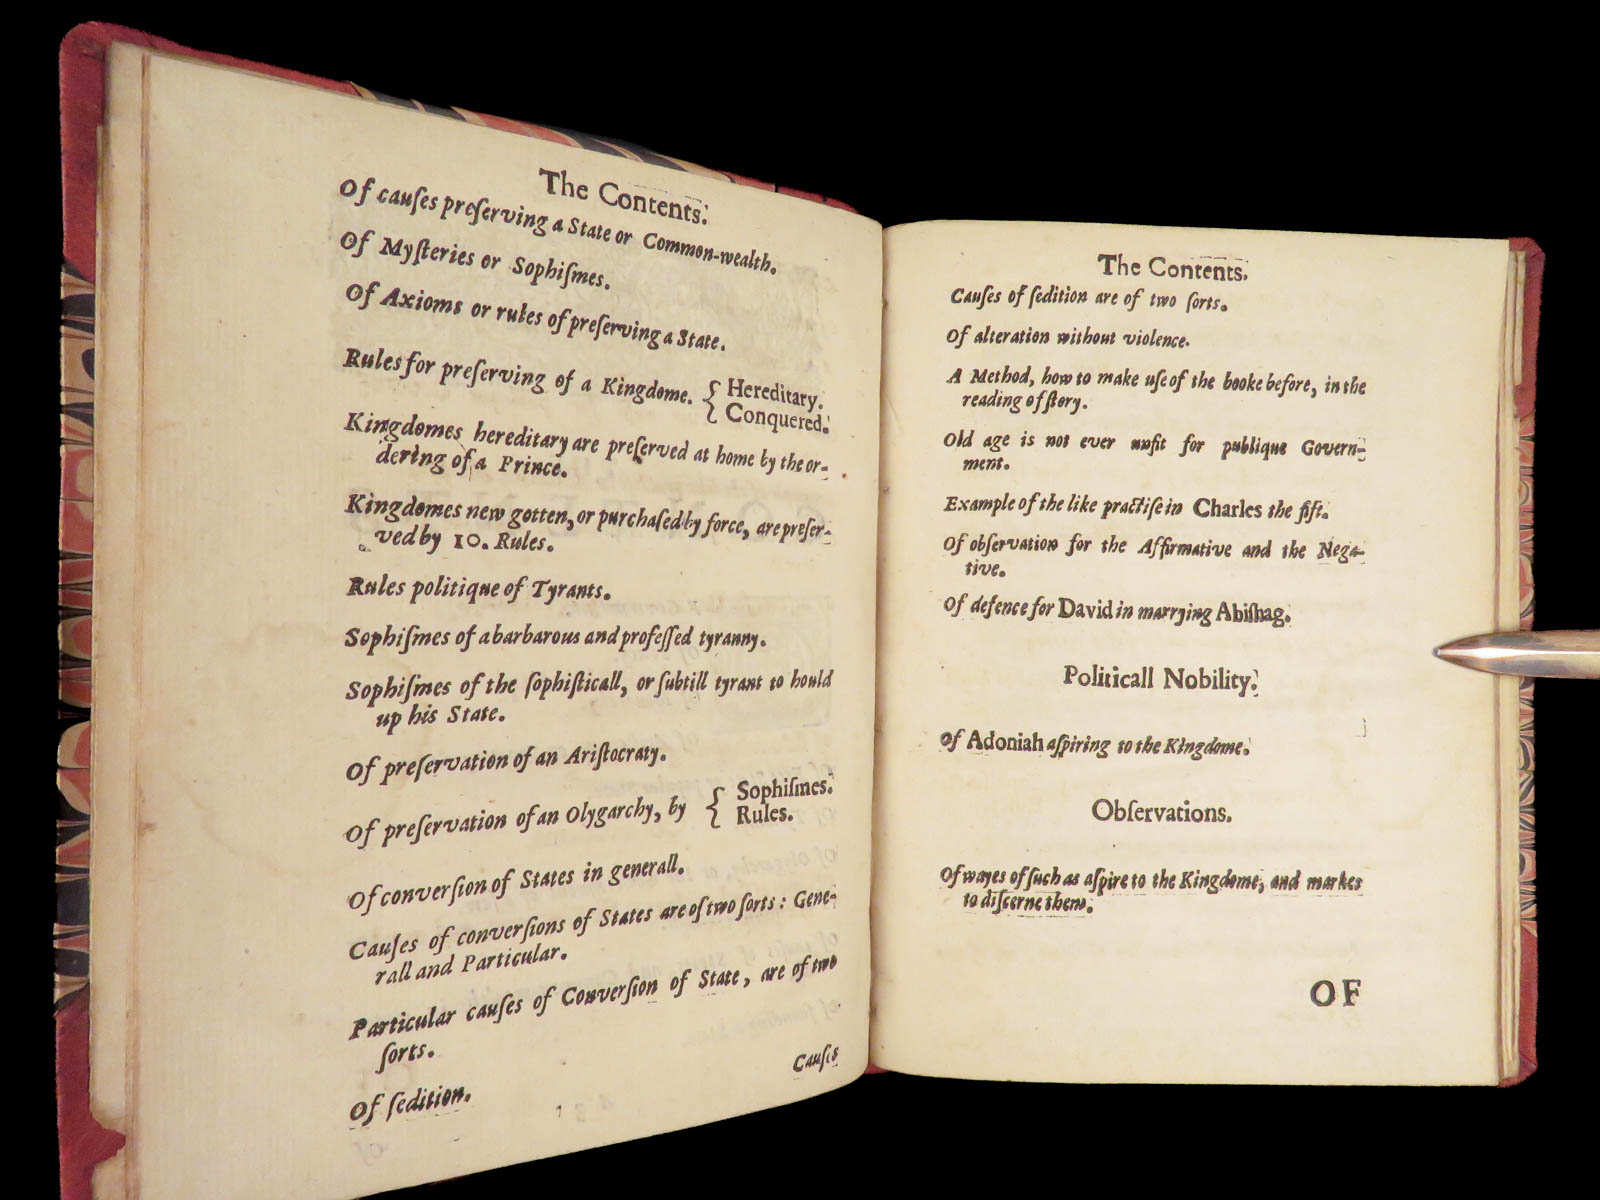 The Contents.
Of cauſes preſerving a State or Common-wealth.
Of Myſteries or Sophiſmes.
Of Axioms or rules of preſerving a State.
Rules for preſerving of a Kingdome. { Hereditary.
{ Conquered.
Kingdomes hereditary are preſerved at home by the or-
dering of a Prince.
Kingdomes new gotten, or purchaſed by force, are preſer-
ved by 10. Rules.
Rules politique of Tyrants.
Sophiſmes of a barbarous and profeſſed tyranny.
Sophiſmes of the ſophiſticall, or ſubtill tyrant to hould
up his State.
Of preſervation of an Ariſtocraty.
Of preſervation of an Olygarchy, by { Sophiſmes.
{ Rules.
Of converſion of States in generall.
Cauſes of converſions of States are of two ſorts: Gene-
rall and Particular.
Particular cauſes of Converſion of State, are of two
ſorts.
Of ſedition.
Cauſes
The Contents.
Cauſes of ſedition are of two ſorts.
Of alteration without violence.
A Method, how to make uſe of the booke before, in the
reading of ſtory.
Old age is not ever unfit for publique Govern-
ment.
Example of the like practiſe in Charles the fift.
Of obſervation for the Affirmative and the Nega-
tive.
Of defence for David in marrying Abiſhag.
Politicall Nobility.
Of Adoniah aſpiring to the Kingdome.
Obſervations.
Of wayes of ſuch as aſpire to the Kingdome, and markes
to diſcerne them.
OF